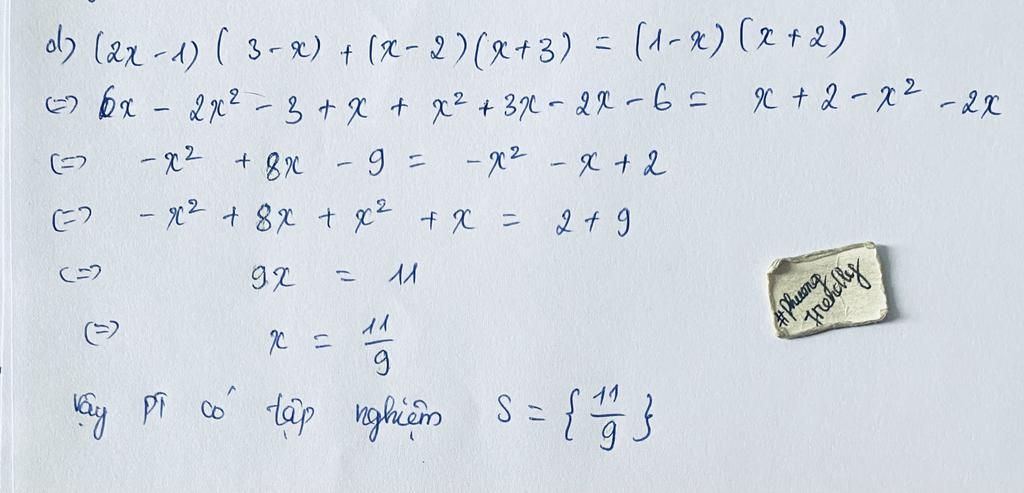 d) (2x - 1) ( 3 - x) + (x - 2)(x + 3) = (1 - x) (x + 2)
(=) 6x - 2x² - 3 + x + x² + 3x - 2x - 6 = x + 2 - x² - 2x
(=) - x² + 8x - 9 = - x² - x + 2
(=) - x² + 8x + x² + x = 2 + 9
(=) 9x = 11
(=) x = 11/9
vậy pT có tập nghiệm S = { 11/9 }
#phuong
friendly